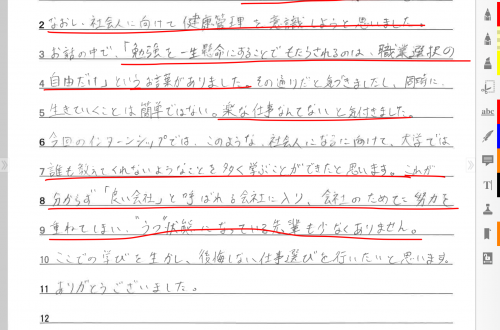 2 なおし、社会人に向けて健康管理を意識しようと思いました。
3 お話の中で、「勉強を一生懸命にすることでもたらされるのは、職業選択の
4 自由だけ」という言葉がありました。その通りだと気づきましたし、同時に、
5 生きていくことは簡単ではない。楽な仕事なんてないと気付きました。
6 今回のインターンシップでは、このような、社会人になるに向けて、大学では
7 誰も教えてくれないようなことを多く学ぶことができたと思います。これが
8 分からず「良い会社」と呼ばれる会社に入り、会社のために努力を
9 重ねてしまい、"うつ"状態になっている先輩も少なくありません。
10 ここでの学びを生かし、後悔しない仕事選びを行いたいと思います。
11 ありがとうございました。
12
abc
T